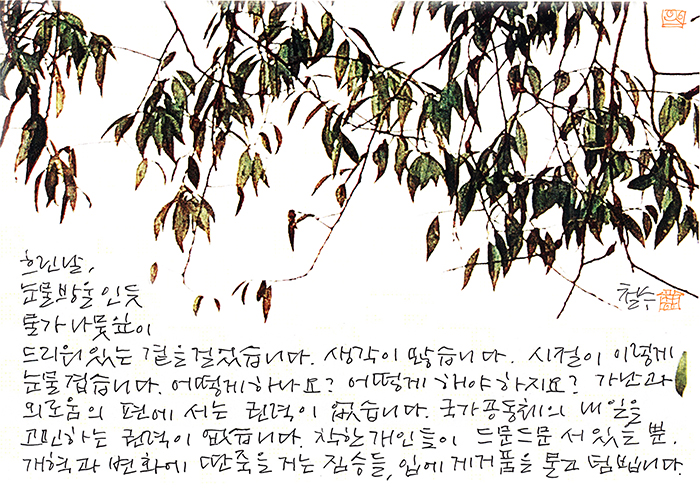 흐린날,
눈물방울인듯
물가나뭇잎이
철수
드리워있는 길을걸었습니다. 생각이 많습니다. 시절이 이렇게
눈물겹습니다. 어떻게하나요? 어떻게 해야하지요? 가난과
외로움의 편에 서는 권력이 없습니다. 국가공동체의 내일을
고민하는 권력이 없습니다. 착한개인들이 드문드문 서있을 뿐.
개혁과 변화에 딴죽을 거는 짐승들, 입에 게거품을 물고 덤빕니다.